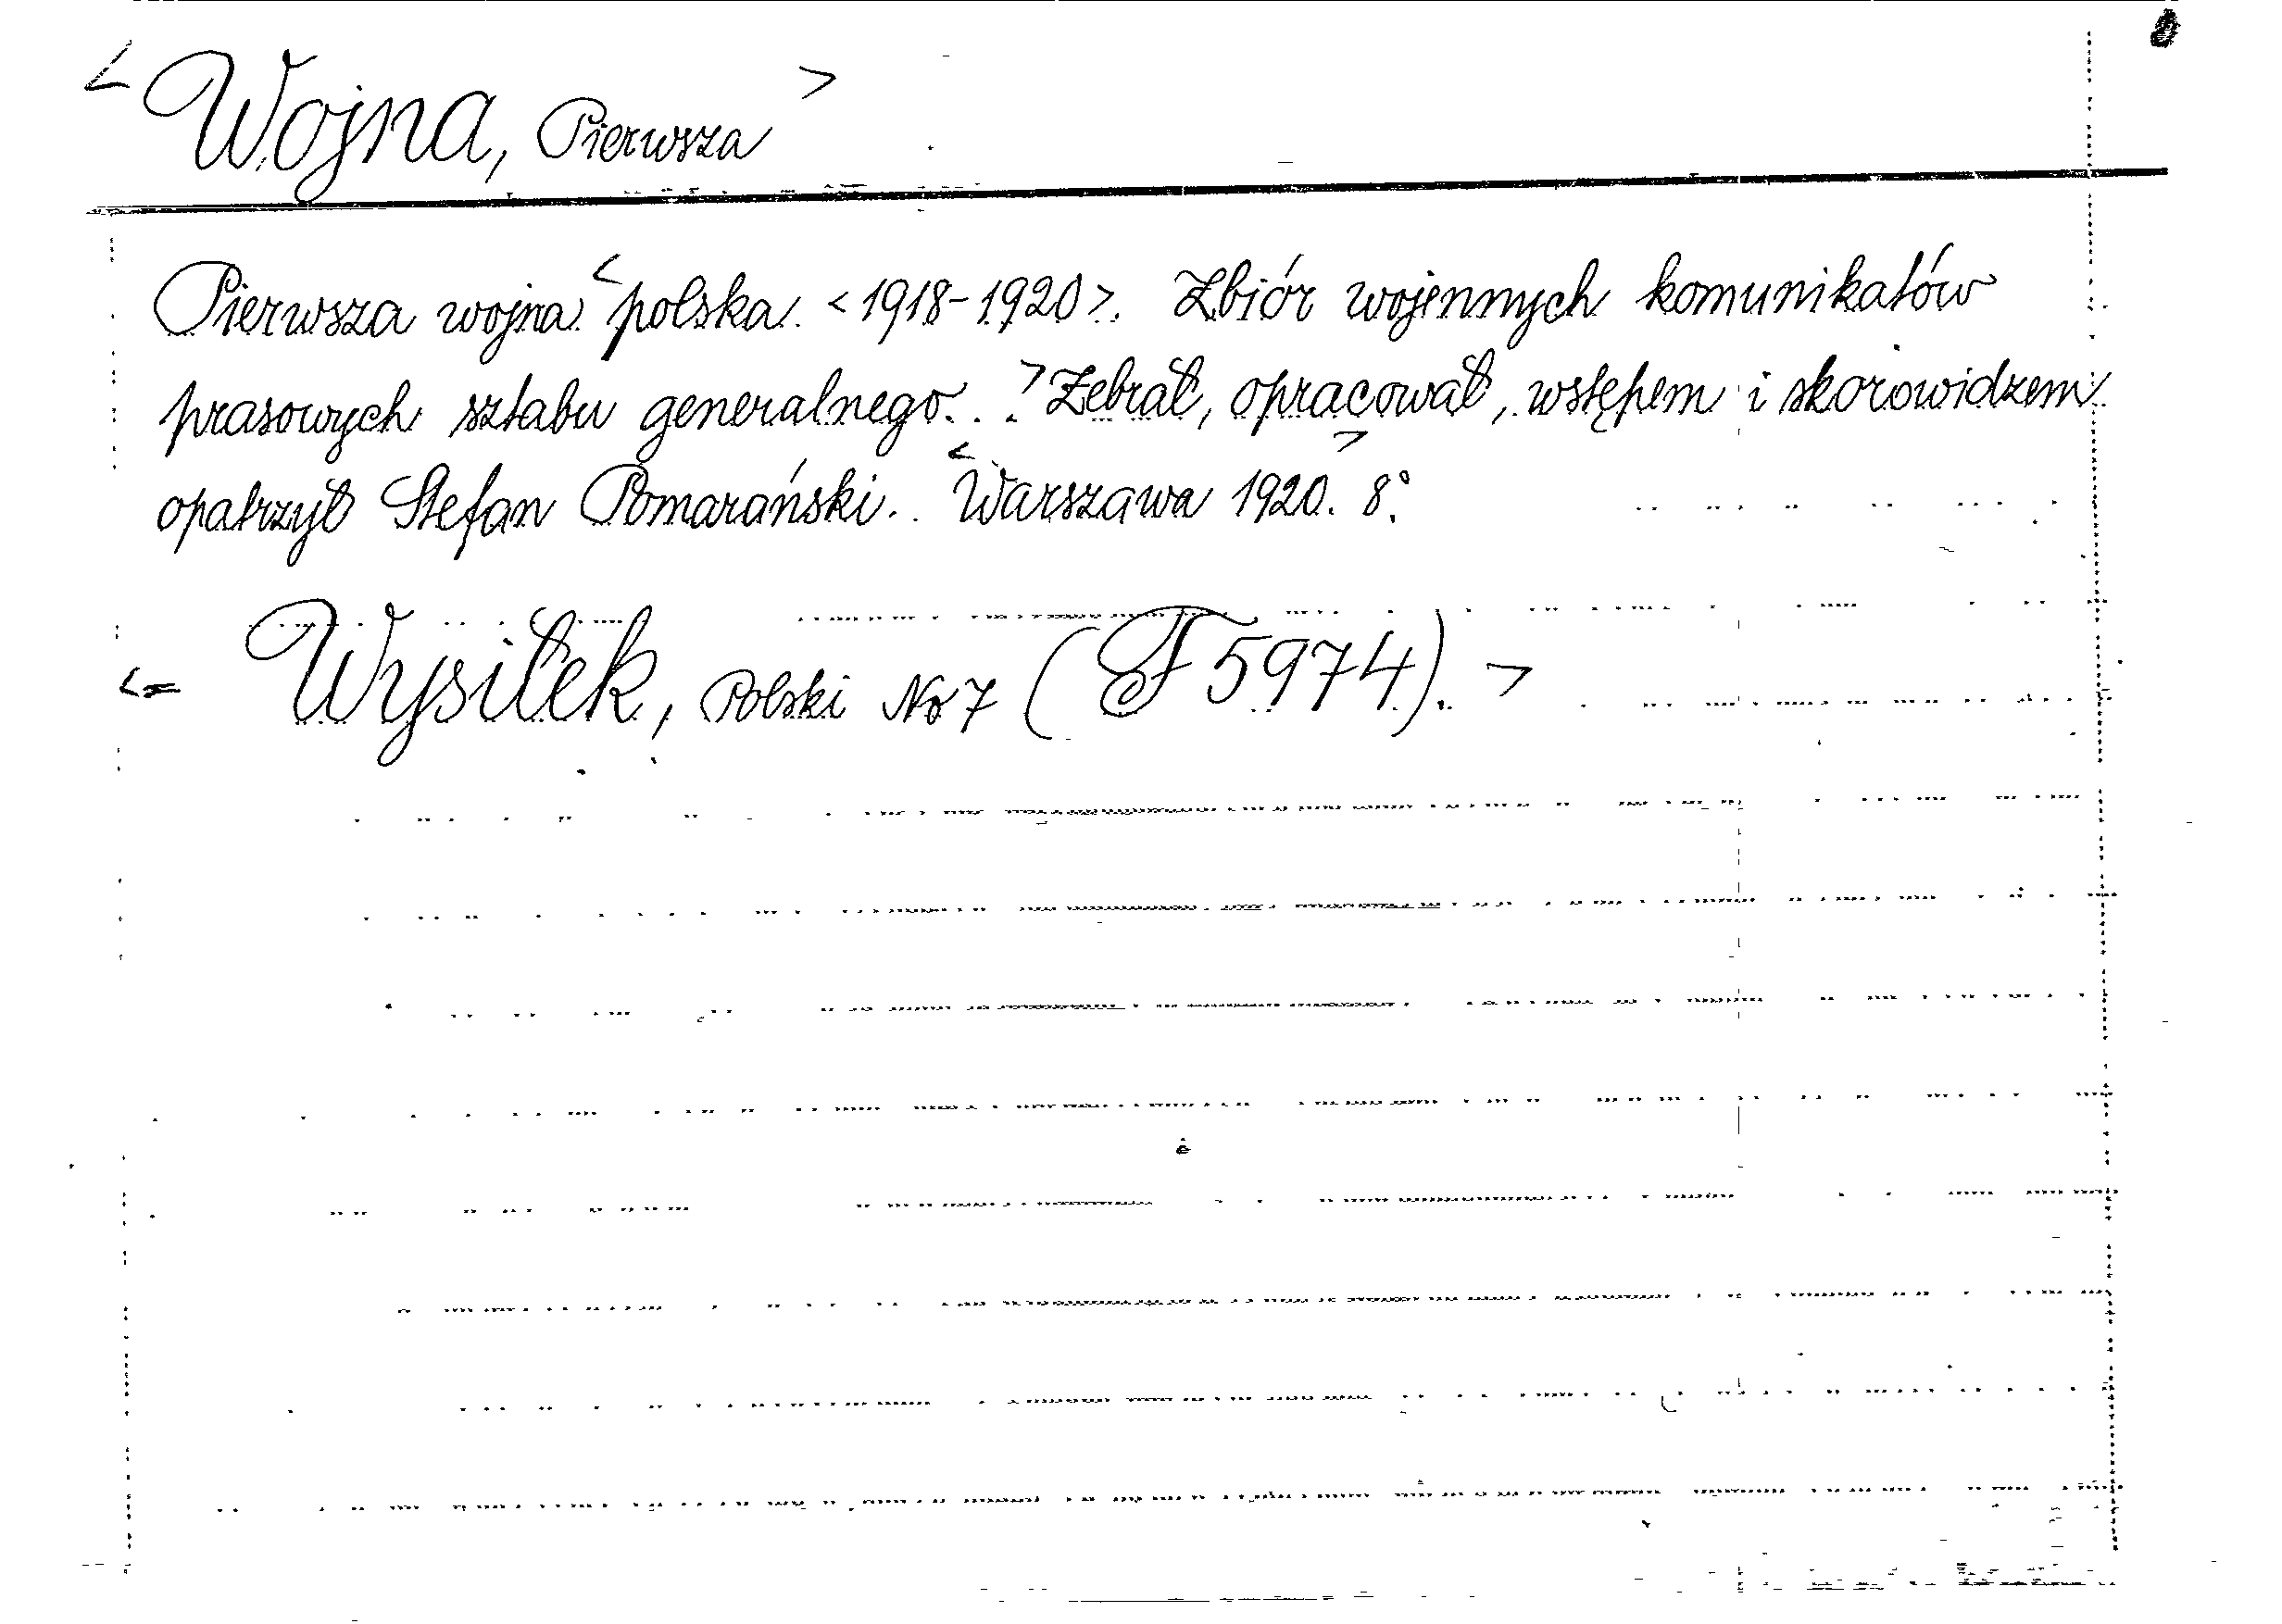 < Wojna, Pierwsza >
Pierwsza wojna < polska <1918-1920>. Zbiór wojennych komunikatów
prasowych sztabu generalnego. . . > Zebrał, opracował, wstępem i skorowidzem
opatrzył Stefan Pomarański. < Warszawa > 1920. 8°.
<= Wysiłek, Polski No 7 (F 5974). >